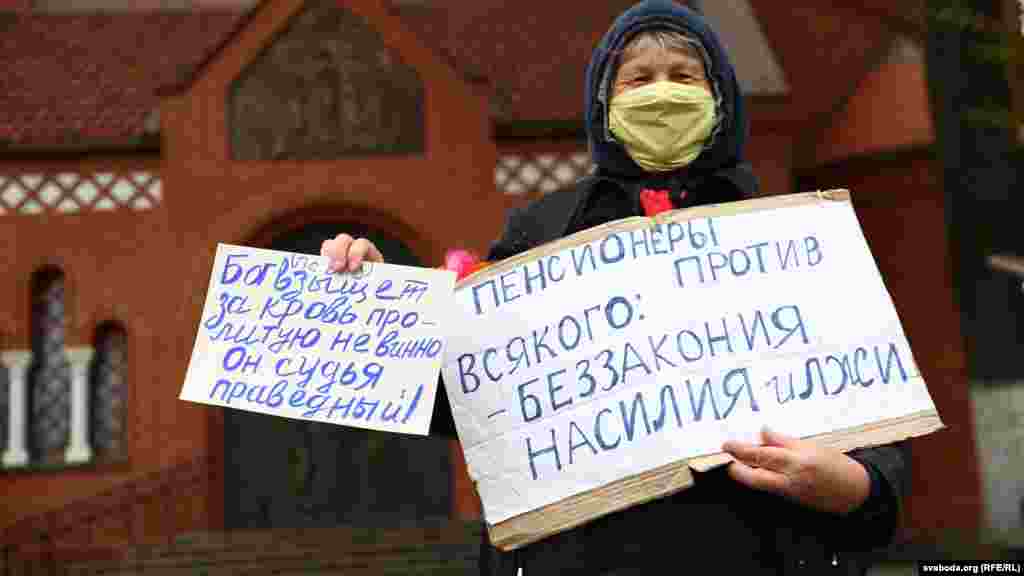 (пс. 9)
Бог взыщет
за кровь про-
литую невинно
Он судья
праведный!
ПЕНСИОНЕРЫ
ПРОТИВ
ВСЯКОГО:
- БЕЗЗАКОНИЯ
НАСИЛИЯ и ЛЖИ
svaboda.org (RFE/RL)